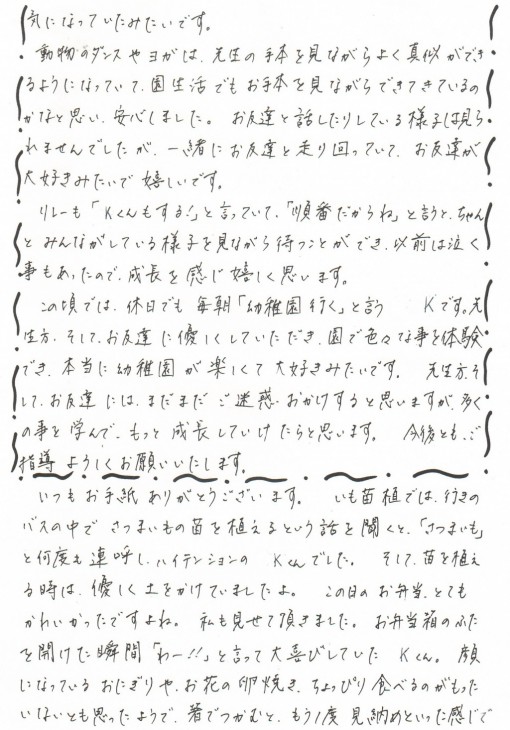 気になっていたみたいです。
動物のダンスやヨガは、先生の手本を見ながらよく真似ができ
るようになっていて、園生活でもお手本を見ながらできてきているの
かなと思い、安心しました。お友達と話したりしている様子は見ら
れませんでしたが、一緒にお友達と走り回っていて、お友達が
大好きみたいで嬉しいです。
リレーも「Kくんもする!」と言っていて、「順番だからね」と言うと、ちゃん
とみんながしている様子を見ながら待つことができ、以前は泣く
事もあったので、成長を感じ嬉しく思います。
この頃では、休日でも毎朝「幼稚園行く」と言う Kです。先
生方、そして、お友達に優しくしていただき、園で色々な事を体験
でき、本当に幼稚園が楽しくて大好きみたいです。先生方、そ
して、お友達には、まだまだご迷惑、おかけすると思いますが、多く
の事を学んで、もっと成長していけたらと思います。今後とも、ご
指導よろしくお願いいたします。
いつもお手紙ありがとうございます。いも苗植では、行きの
バスの中でさつまいもの苗を植えるという話を聞くと、「さつまいも」
と何度も連呼し、ハイテンションの Kくんでした。そして、苗を植え
る時は、優しく土をかけていましたよ。この日のお弁当、とても
かわいかったですよね。私も見せて頂きました。お弁当箱のふた
を開けた瞬間「わー!!」と言って大喜びしていた Kくん。顔
になっているおにぎりや、お花の卵焼き、ちょっぴり食べるのがもった
いないとも思ったようで、箸でつかむと、もう1度見納めといった感じで